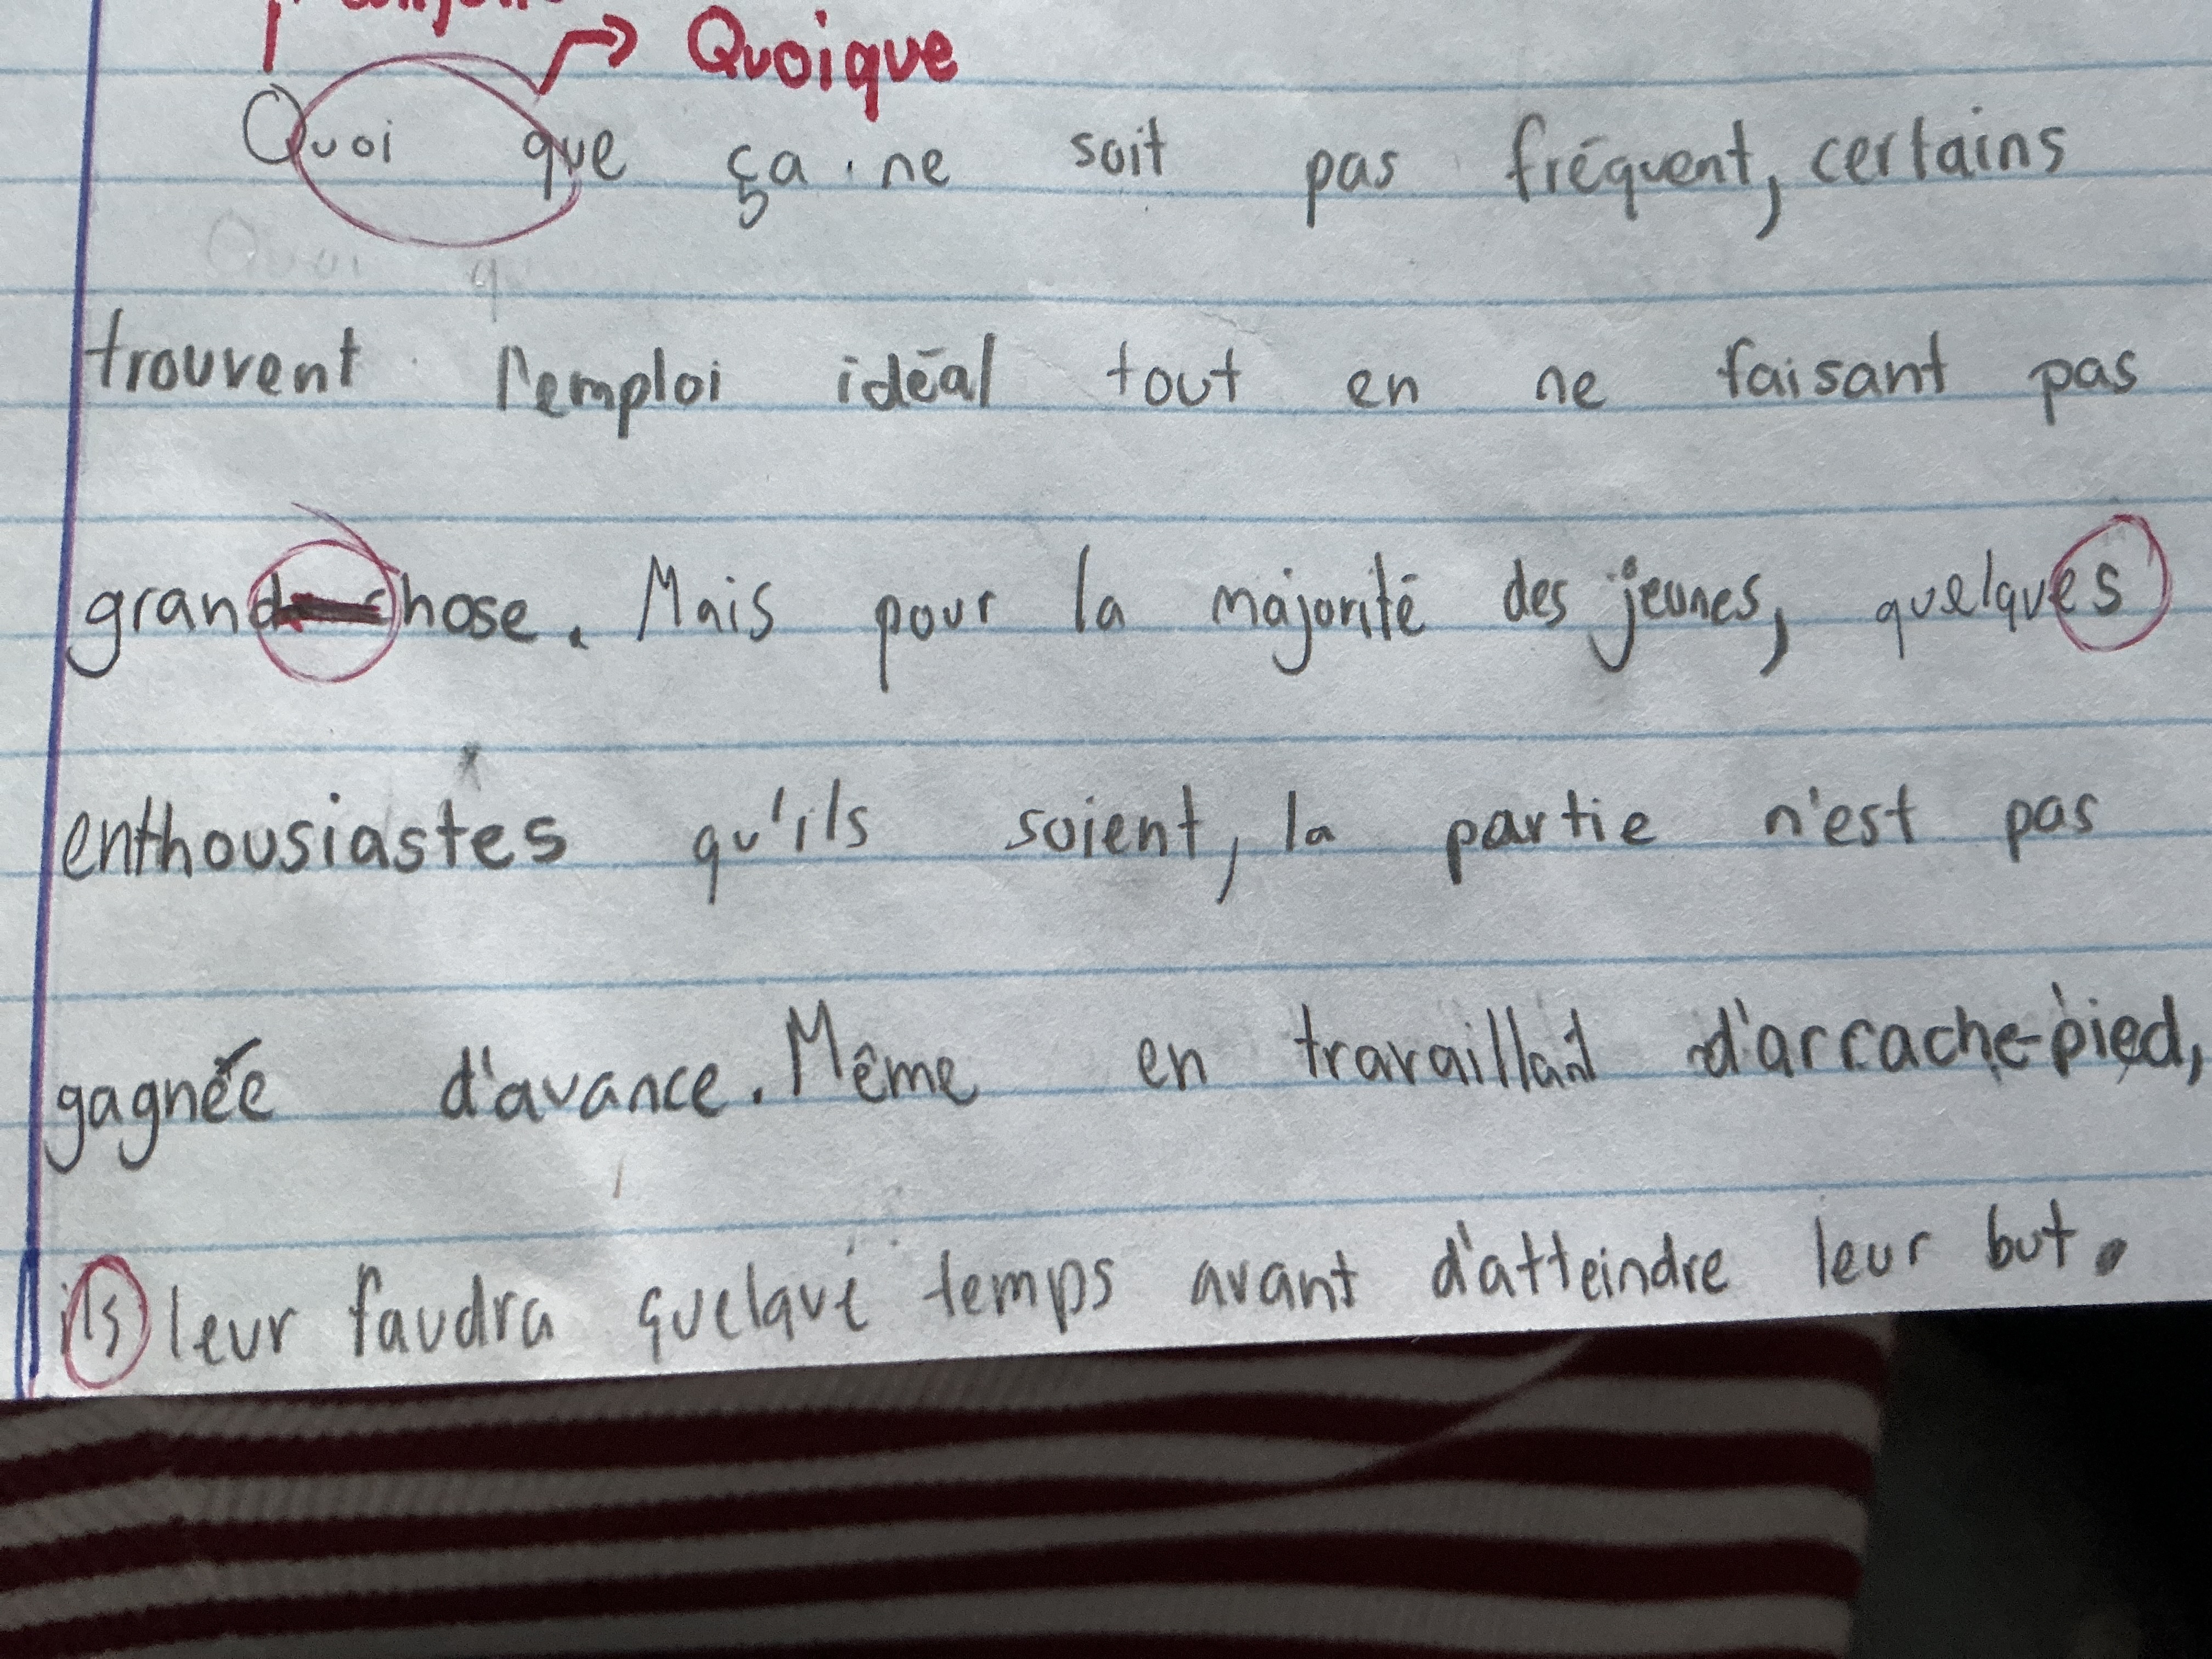 Quoique
Quoi que ça ne soit pas fréquent, certains
trouvent l'emploi idéal tout en ne faisant pas
grand-chose. Mais pour la majorité des jeunes, quelques
enthousiastes qu'ils soient, la partie n'est pas
gagnée d'avance. Même en travaillant d'arrache-pied,
ils leur faudra quelque temps avant d'atteindre leur but.